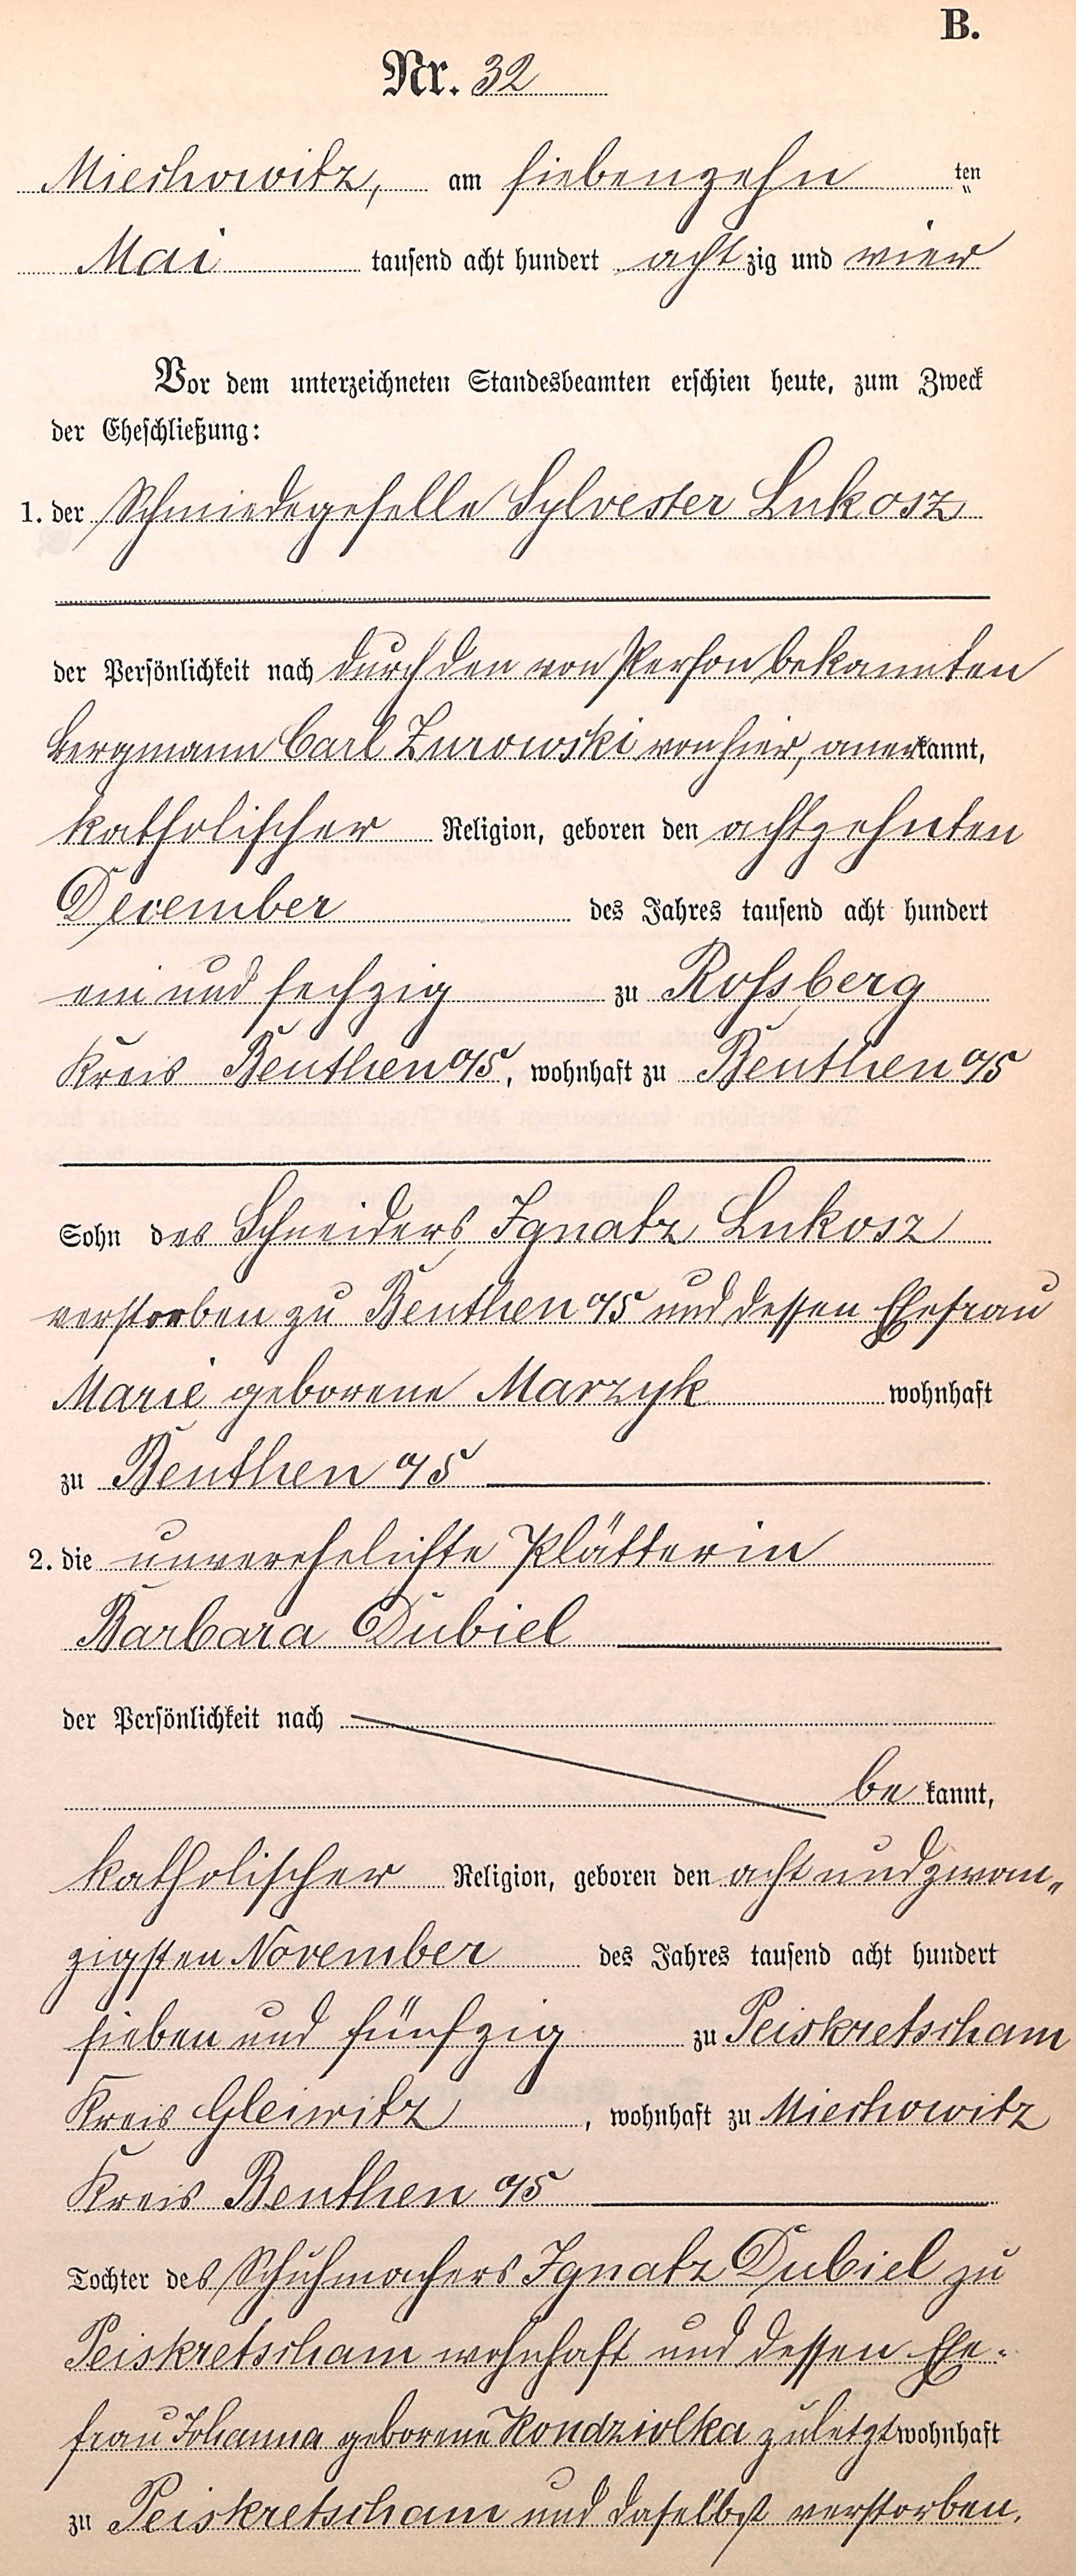 B.
Nr. 32
Miechowitz, am siebenzehn ten
Mai tausend acht hundert achtzig und vier
Vor dem unterzeichneten Standesbeamten erschien heute, zum Zweck
der Eheschließung:
1. der Schmiedegeselle Sylvester Lukosz
der Persönlichkeit nach durch den von Person bekannten
Bergmann Carl Zurowski von hier, anerkannt,
katholischer Religion, geboren den achtzehnten
December des Jahres tausend acht hundert
ein und sechzig zu Rossberg
Kreis Beuthen O/S, wohnhaft zu Beuthen O/S
Sohn des Schneiders Ignatz Lukosz
verstorben zu Beuthen O/S und dessen Ehefrau
Marie geborene Marzyk wohnhaft
zu Beuthen O/S
2. die unverehelichte Plätterin
Barbara Dubiel
der Persönlichkeit nach
bekannt,
katholischer Religion, geboren den acht und zwan-
zigsten November des Jahres tausend acht hundert
sieben und fünfzig zu Peiskretscham
Kreis Gleiwitz, wohnhaft zu Miechowitz
Kreis Beuthen O/S
Tochter des Schuhmachers Ignatz Dubiel zu
Peiskretscham wohnhaft und dessen Ehe-
frau Johanna geborene Kondziolka zuletzt wohnhaft
zu Peiskretscham und daselbst verstorben.